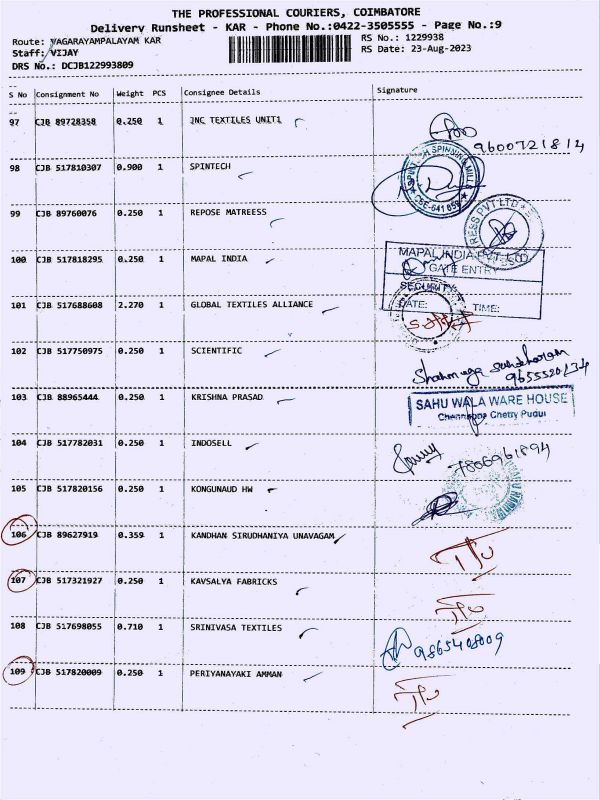 THE PROFESSIONAL COURIERS, COIMBATORE
Delivery Runsheet - KAR - Phone No.:0422-3505555 - Page No.:9
Route: VAGARAYAMPALAYAM KAR RS No.: 1229938
Staff: VIJAY RS Date: 23-Aug-2023
DRS No.: DCJB122993809
S No Consignment No Weight PCS Consignee Details Signature
97 CJB 89728358 0.250 1 JNC TEXTILES UNIT1
9600721814
98 CJB 517810307 0.900 1 SPINTECH
SPINNING MILLS
CBE-641 659
99 CJB 89760076 0.250 1 REPOSE MATREESS
PVT LTD
100 CJB 517818295 0.250 1 MAPAL INDIA
MAPAL INDIA PVT. LTD.
GATE ENTRY
SECURITY
DATE: TIME:
101 CJB 517688608 2.270 1 GLOBAL TEXTILES ALLIANCE
102 CJB 517750975 0.250 1 SCIENTIFIC
9655520134
103 CJB 88965444 0.250 1 KRISHNA PRASAD
SAHU WALA WARE HOUSE
Chennappa Chetty Pudur
104 CJB 517782031 0.250 1 INDOSELL
7806961894
105 CJB 517820156 0.250 1 KONGUNAUD HW
106 CJB 89627919 0.359 1 KANDHAN SIRUDHANIYA UNAVAGAM
107 CJB 517321927 0.250 1 KAVSALYA FABRICKS
108 CJB 517698055 0.710 1 SRINIVASA TEXTILES
9865408009
109 CJB 517820009 0.250 1 PERIYANAYAKI AMMAN